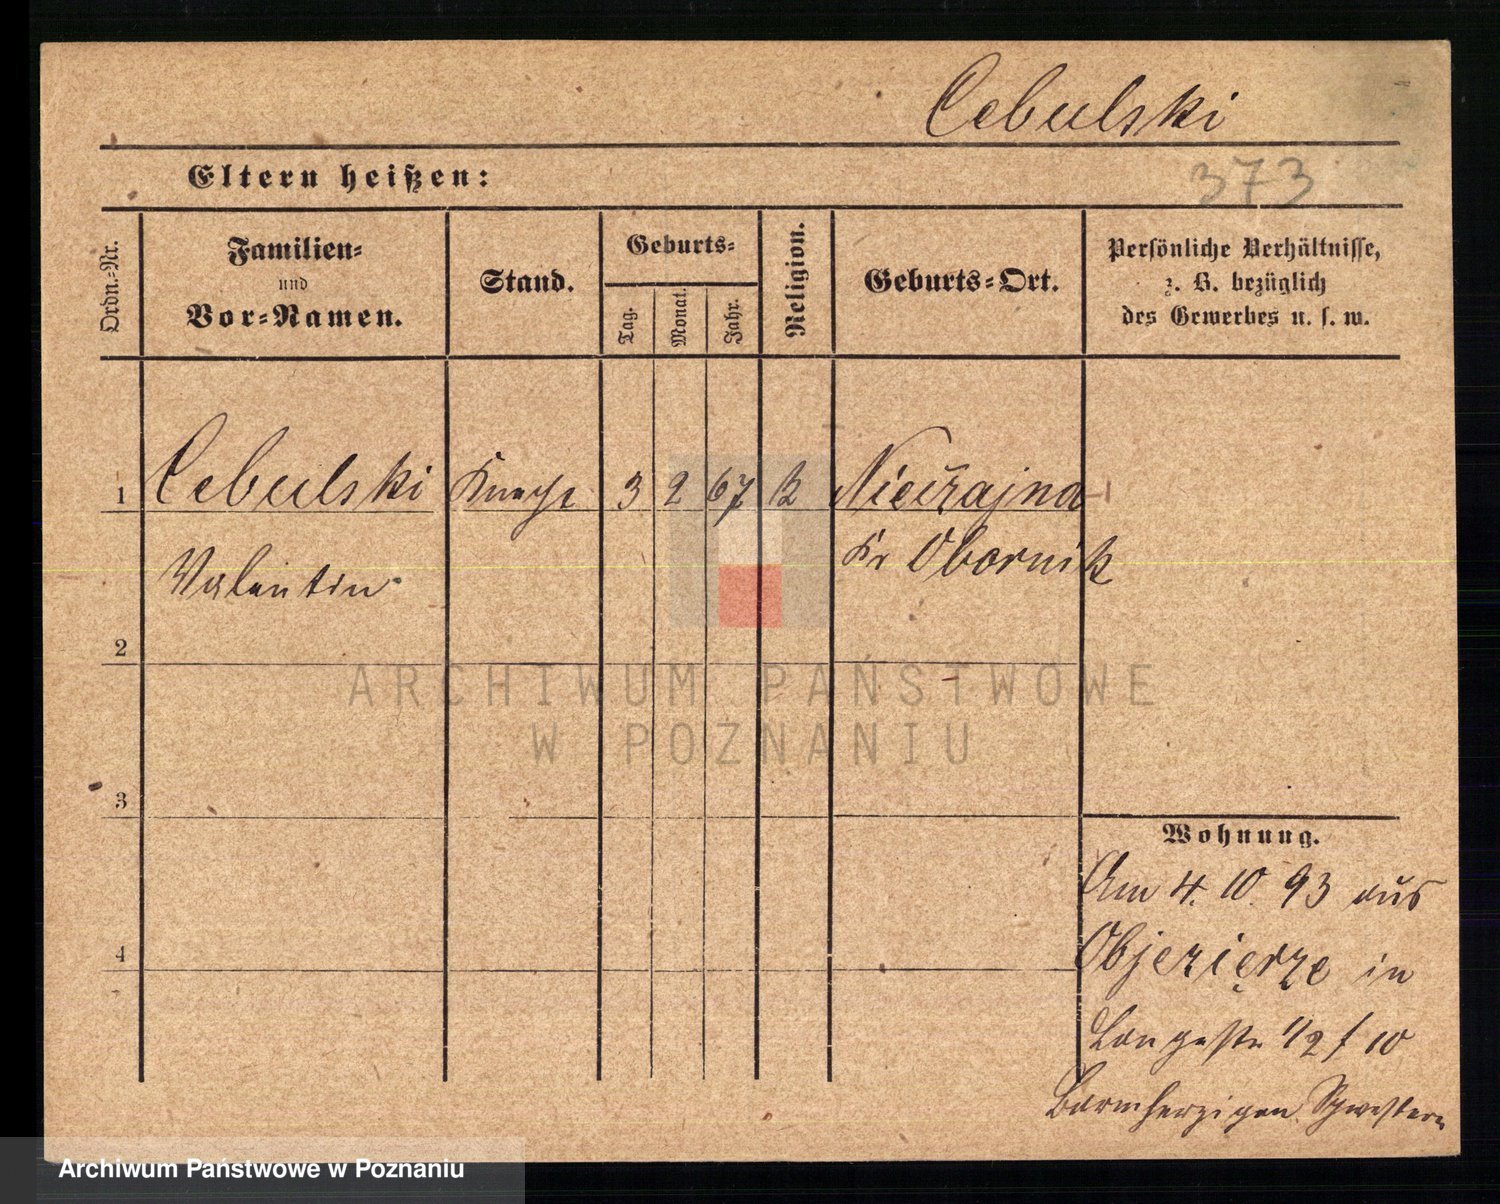 Cebulski
373
Eltern heißen:
Ordn.-Nr.
Familien-
und
Vor-Namen.
Stand.
Geburts-
Tag.
Monat.
Jahr.
Religion.
Geburts-Ort.
Persönliche Verhältnisse,
z. B. bezüglich
des Gewerbes u. s. w.
1 Cebulski Knecht 3 2 67 k
Valentin
Kr Obornik
2
3
4
Wohnung.
Am 4. 10. 93 aus
Objezierze in
Langestr 1/2 f 10
Barmherzigen Schwestern
ARCHIWUM PAŃSTWOWE
W POZNANIU
Archiwum Państwowe w Poznaniu